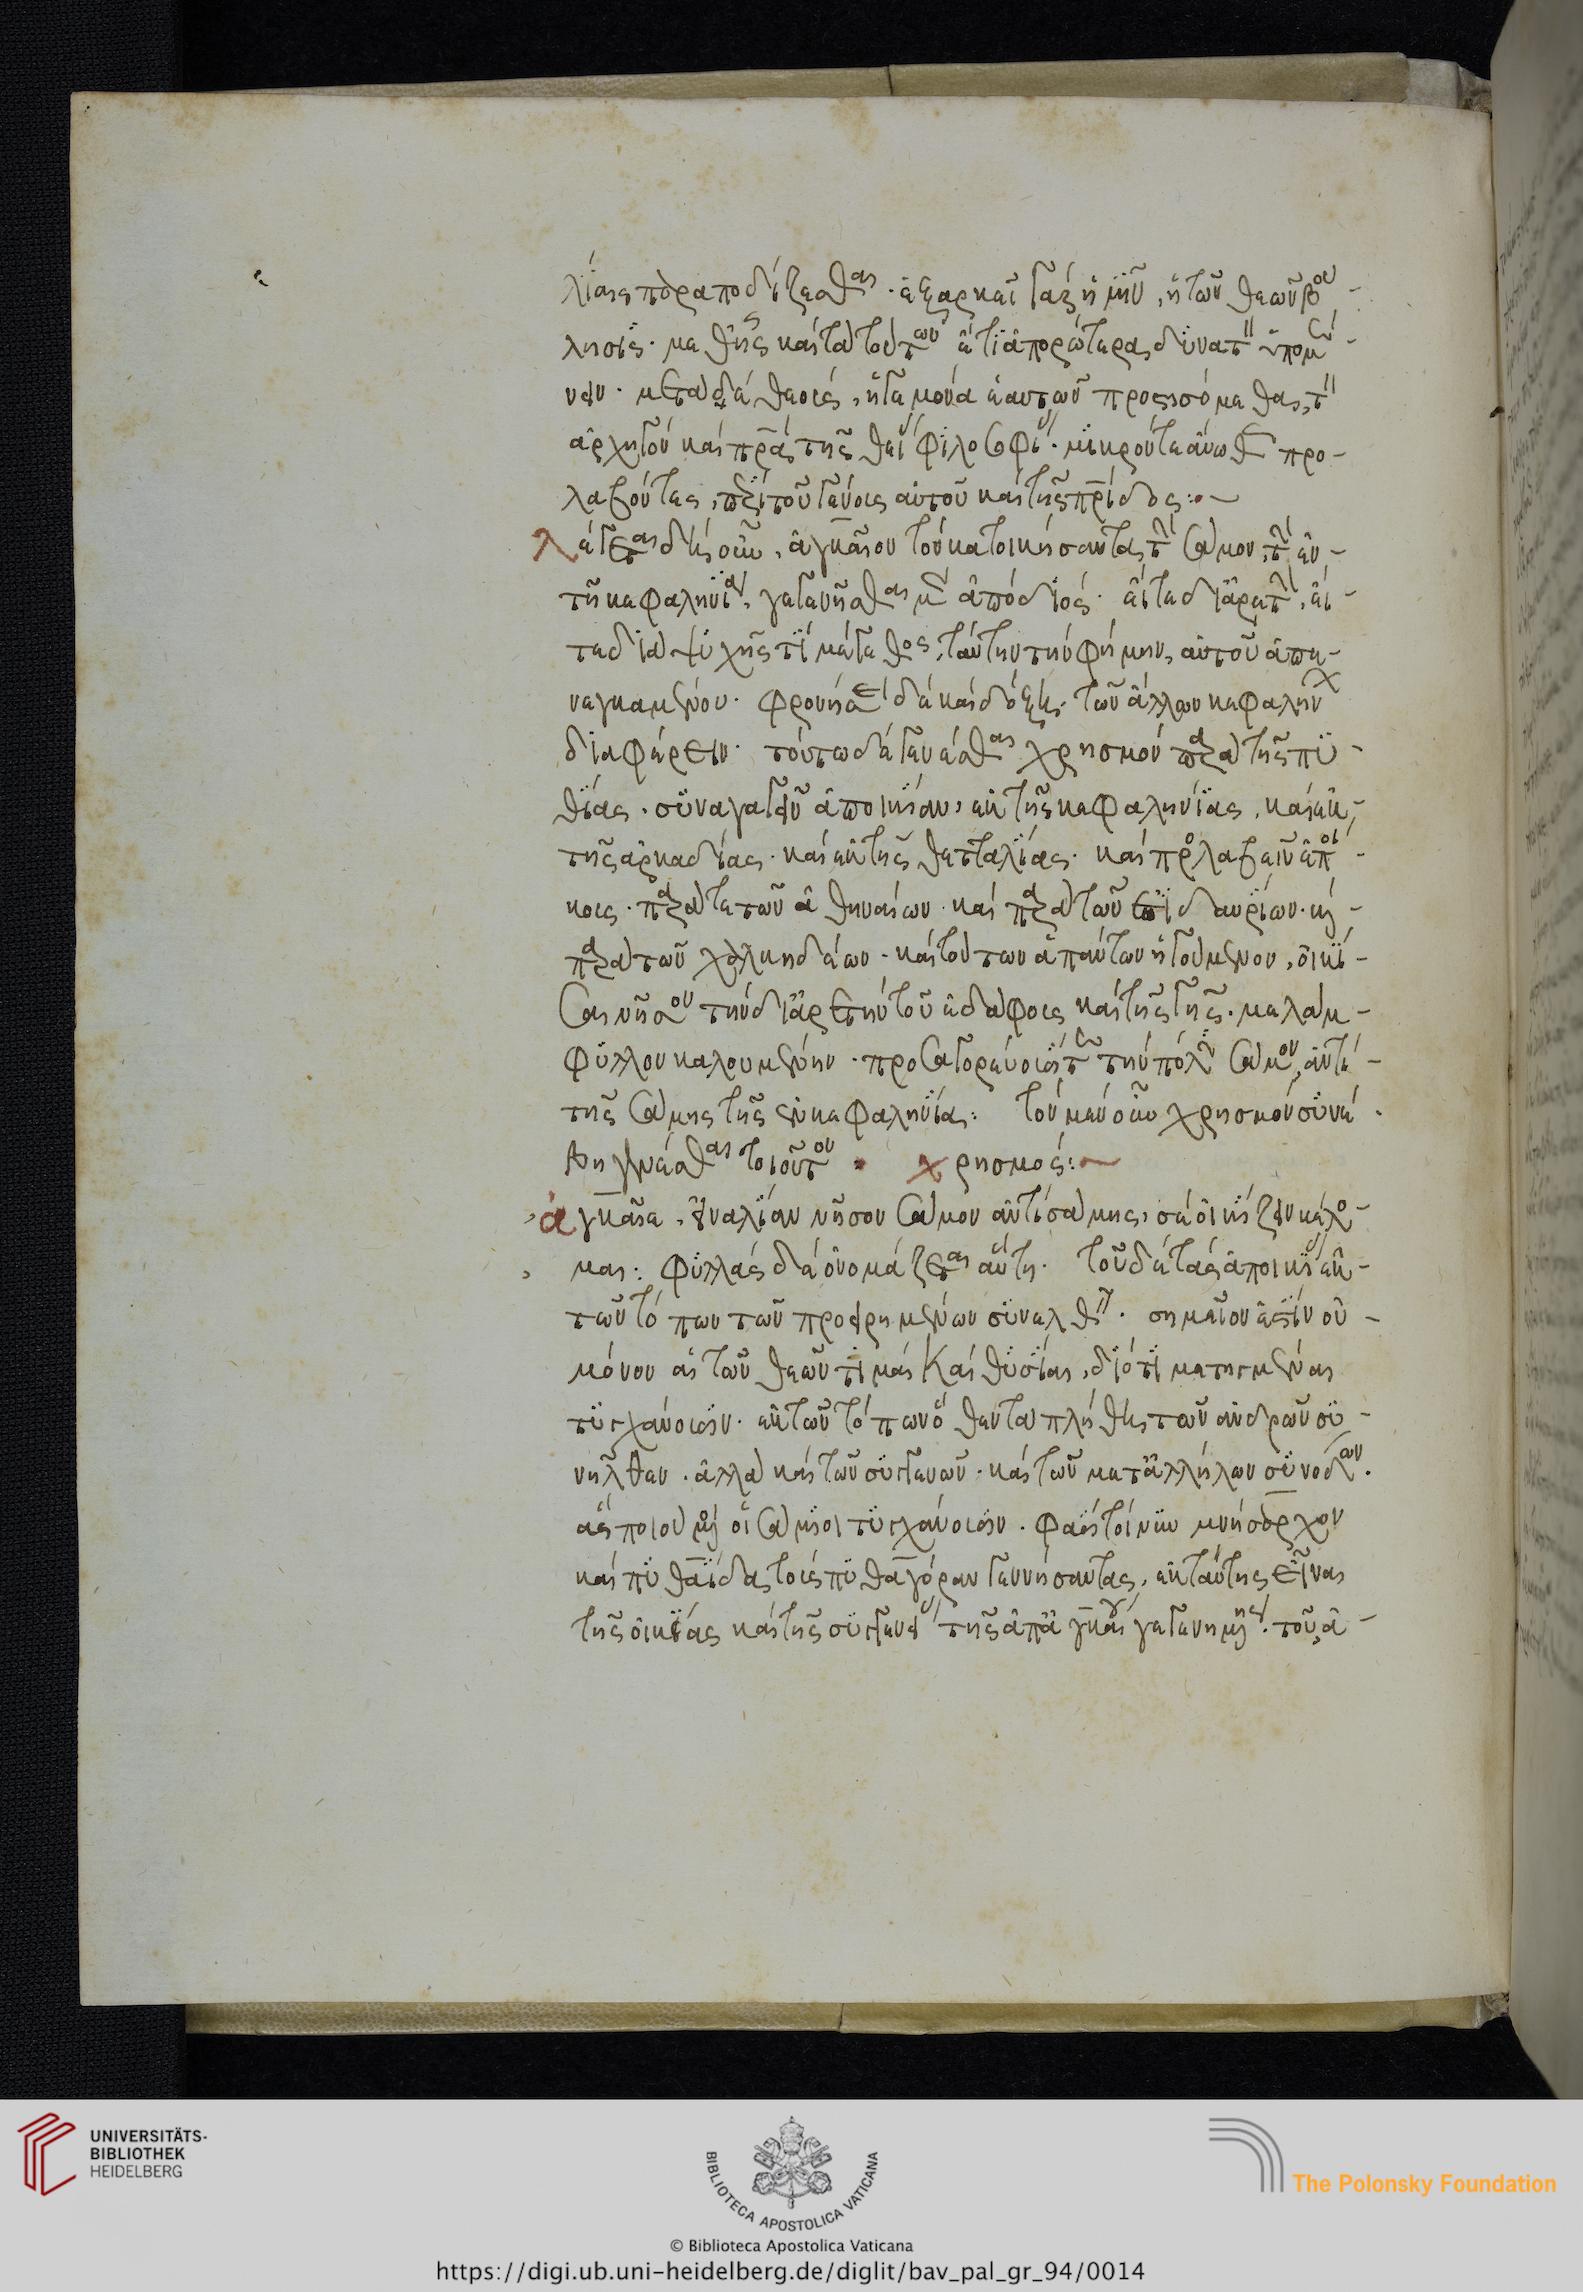 λίαις παραποδίζεσθαι. ἐξαρκεῖ γὰρ ἡμῖν, ἡ τῶν θεῶν βού-
λησις. μεθ' ἧς καὶ τὰ τούτων ἔτι ἀπορώτερα, δυνατὸν ὑπομέ-
νειν. μετὰ δὲ θεοὺς, ἡγεμόνα ἑαυτῶν προστησόμεθα, τὸν
ἀρχηγὸν καὶ πρα τῆς θείας φιλοσοφίας. μικρόν τε ἄνωθεν προ-
λαβόντες, περὶ τοῦ γένους αὐτοῦ καὶ τῆς πρίδος:~
Λέγεται δὴ οὖν, ἀγκαῖον τὸν κατοικήσαντα τὴν Σάμον, τὴν ἐν
τῇ κεφαληνίᾳ, γεγενῆσθαι μὲν ἀπὸ διός. εἴτε δι' ἀρετὴν, εἴ-
τε διὰ ψυχῆς τι μέγεθος, ταύτην τὴν φήμην, αὐτοῦ ἀπε-
νεγκαμένου. φρονήσει δὲ καὶ δόξῃ, τῶν ἄλλων κεφαλήνων
διαφέρειν. τούτῳ δὲ γενέσθαι χρησμὸν παρὰ τῆς πυ-
θίας. συναγαγεῖν ἀποικίαν, ἐκ τῆς κεφαληνίας, καὶ ἐκ
τῆς ἀρκαδίας. καὶ ἐκ τῆς θετταλίας. καὶ προσλαβεῖν ἐποί-
κους. παρά τε τῶν ἀθηναίων. καὶ παρὰ τῶν ἐπιδαυρίων. καὶ
παρὰ τῶν χαλκηδέων. καὶ τούτων ἁπάντων ἡγούμενον, οἰκί-
σαι νῆσον τὴν δι' ἀρετὴν τοῦ ἐδάφους καὶ τῆς γῆς. μελάμ-
φυλλον καλουμένην. προσαγορεῦσαί τε τὴν πόλιν Σάμον, ἀντὶ
τῆς Σάμης τῆς ἐν κεφαληνίᾳ: τὸν μὲν οὖν χρησμὸν συνέ-
βη γενέσθαι τοιοῦτον. χρησμός:~
ἀγκαῖε, εἰναλίαν νῆσον Σάμον ἀντὶ σάμης, σὲ οἰκίζειν κέλο-
μαι: φυλλὰς δὲ ὀνομάζεται αὕτη. τοῦ δὲ τὰς ἀποικίας ἐκ
τῶν τόπων τῶν προειρημένων συνελθεῖν. σημεῖόν ἐστιν οὐ
μόνον αἱ τῶν θεῶν τιμαὶ καὶ θυσίαι, διότι μετηγμέναι
τυγχάνουσιν. ἐκ τῶν τόπων ὅθεν τὰ πλήθη τῶν ἀνδρῶν συ-
νῆλθεν. ἀλλὰ καὶ τῶν συγγενῶν. καὶ τῶν μετ' ἀλλήλων συνόδων.
ἃς ποιούμενοι οἱ Σάμιοι τυγχάνουσιν. φασὶ τοίνυν μνήσαρχον
καὶ πυθαΐδα, τοὺς πυθαγόραν γεννήσαντας, ἐκ ταύτης εἶναι
τῆς οἰκίας καὶ τῆς συγγενείας τῆς ἀπ' ἀγκαίου γεγενημένης. τοῦ, ἀ-
UNIVERSITÄTS-
BIBLIOTHEK
HEIDELBERG
BIBLIOTECA APOSTOLICA VATICANA
The Polonsky Foundation
© Biblioteca Apostolica Vaticana
https://digi.ub.uni-heidelberg.de/diglit/bav_pal_gr_94/0014